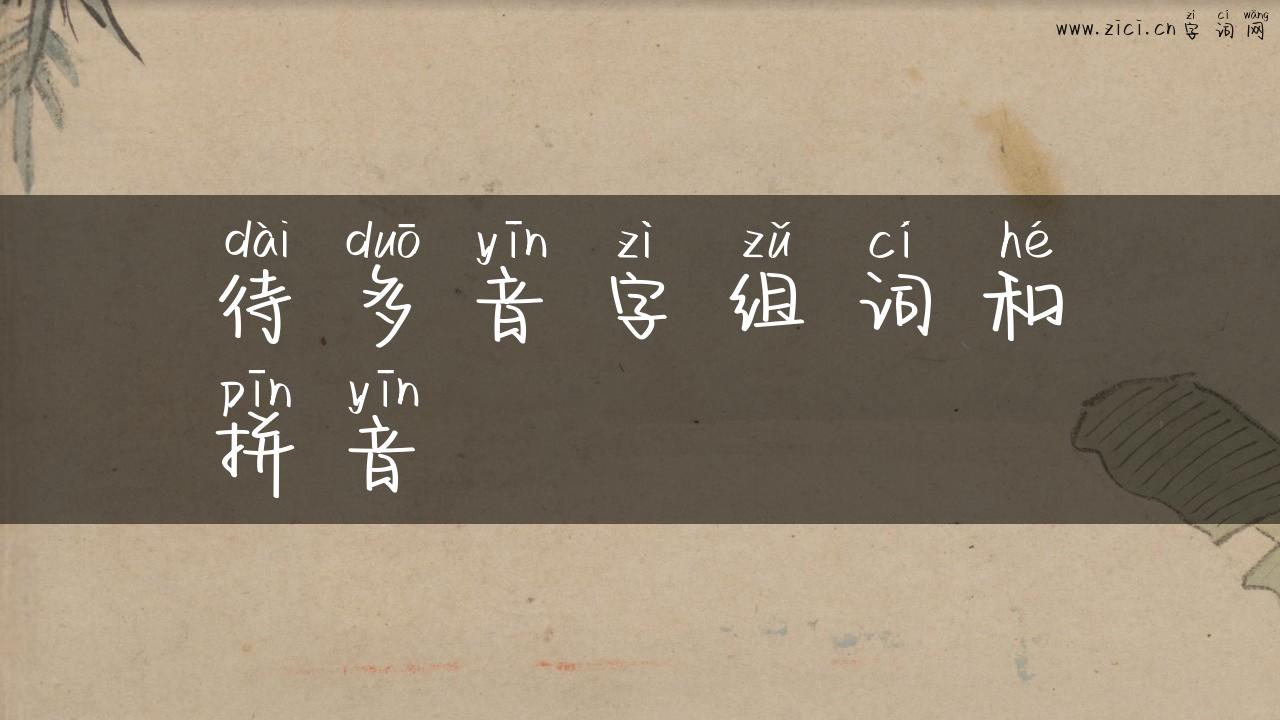 zì cí wǎng
www.zici.cn 字 词 网
dài duō yīn zì zǔ cí hé
待 多 音 字 组 词 和
pīn yīn
拼 音